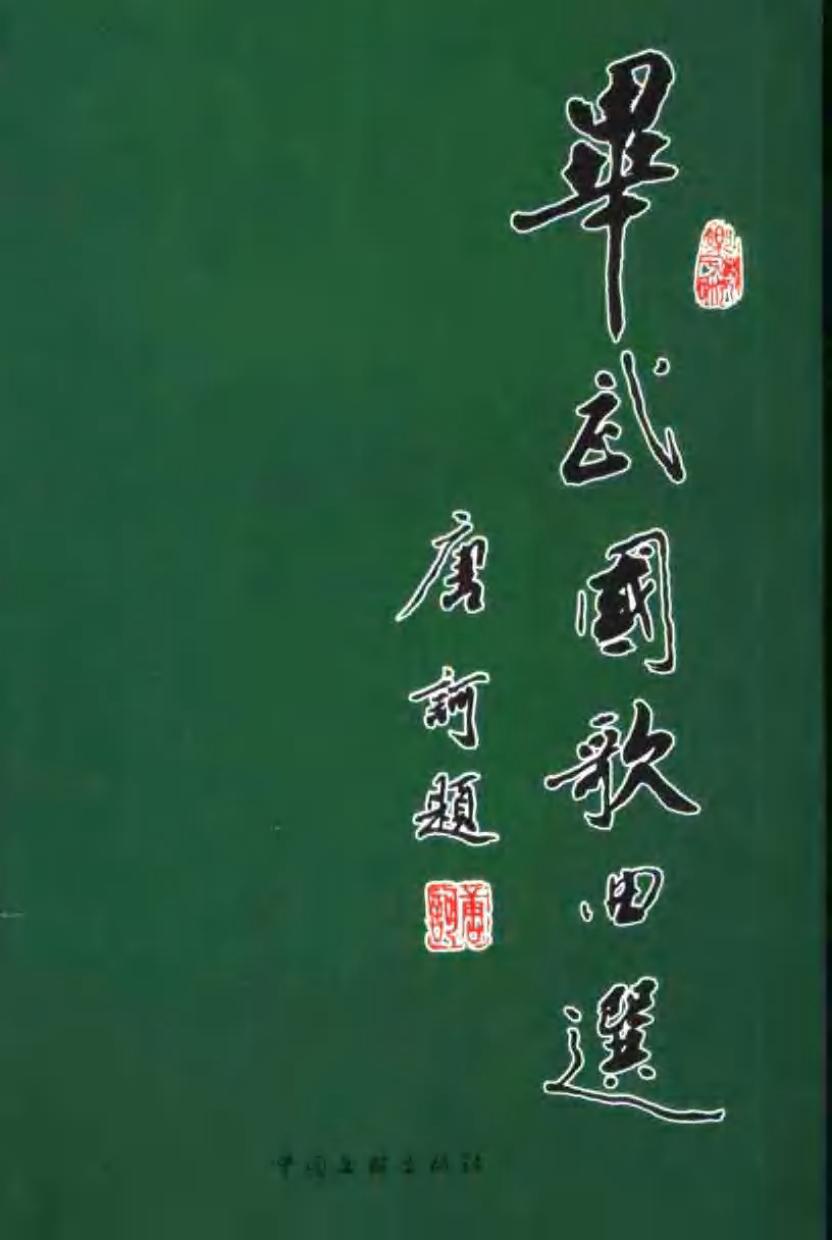 畢武國歌曲選
唐訶題
唐訶
中国文联出版社